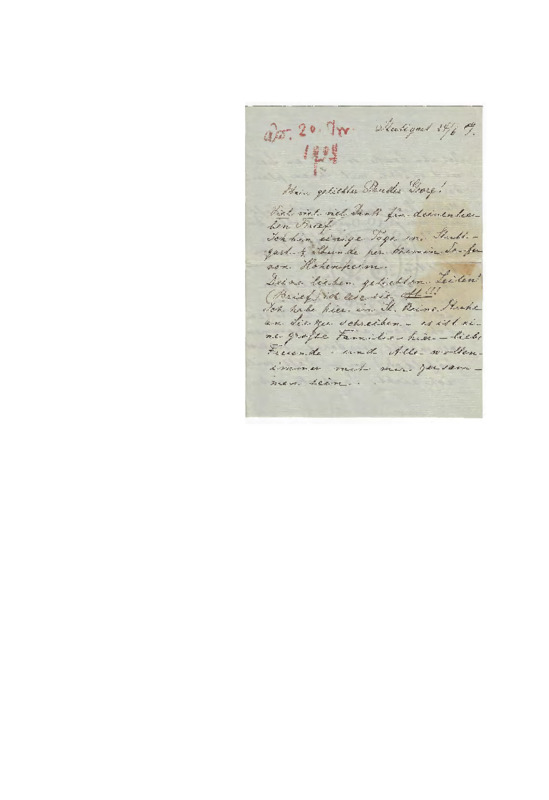 20
Stuttgart
Mein geliebter Bruder Georg!
Viel viel viel Dank für deinen lie-
ben Brief
Ich bin einige Tage in Stutt-
gart ½ Stunde per
von Hohenheim.
Deine lieben geliebten Zeilen!
(Brief) ich lese sie oft!!!
Ich habe hier in St. keine Ruhe
an Sie zu schreiben – es ist ei-
ne große Familie hier – liebe
Freunde – und Alle wollen
immer mit mir zusam-
men sein . .